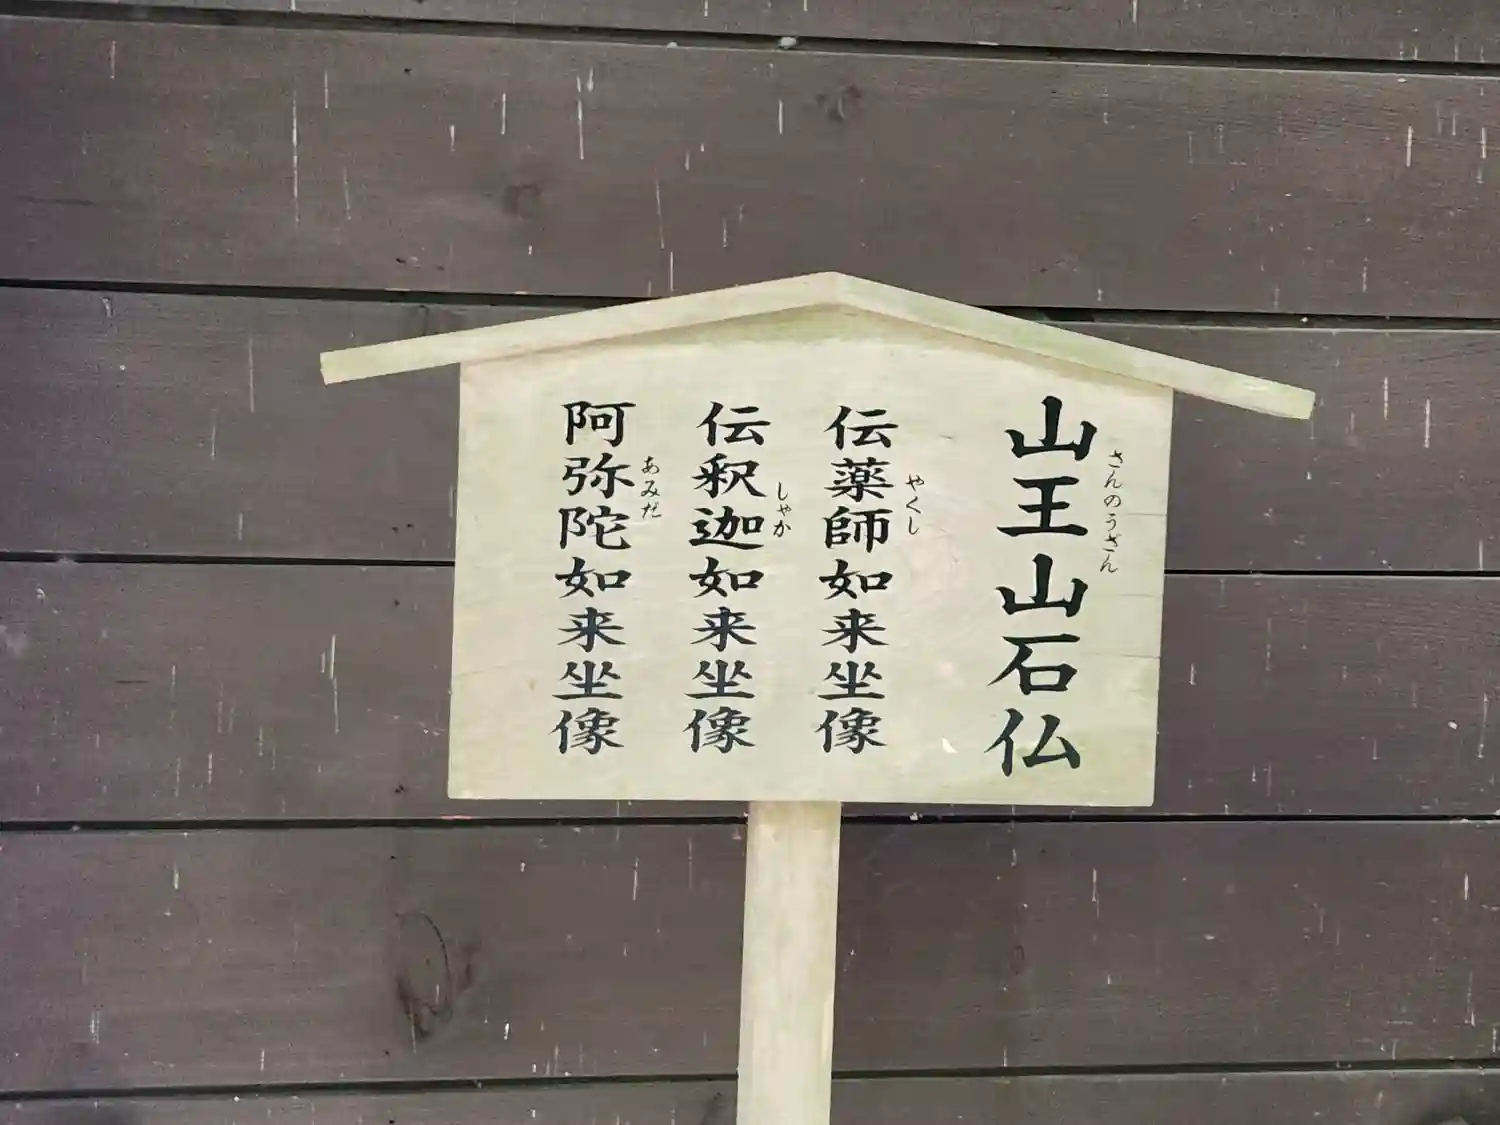 山王山石仏
さんのうざん
伝薬師如来坐像
やくし
伝釈迦如来坐像
しゃか
阿弥陀如来坐像
あみだ